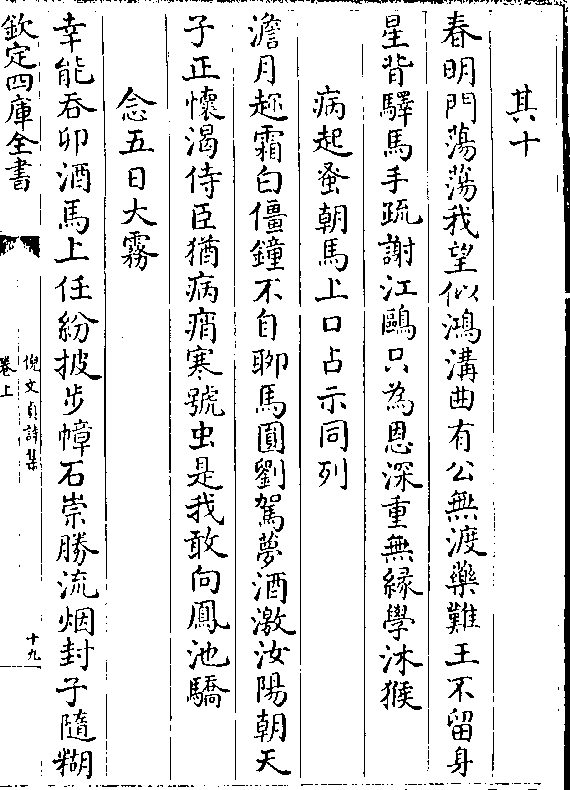 其十
春明門蕩蕩我望似鴻溝曲有公無渡藥難王不留身
星背驛馬手疏謝江鷗只為恩深重無緣學沐猴
病起蚤朝馬上口占示同列
澹月趂霜白僵鐘不自聊馬圓劉駕夢酒激汝陽朝天
子正懷渴侍臣猶病痟寒號虫是我敢向鳳池驕
念五日大霧
幸能吞卯酒馬上任紛披步幛石崇勝流烟封子隨糊
欽定四庫全書
倪文貞詩集
卷上
十九